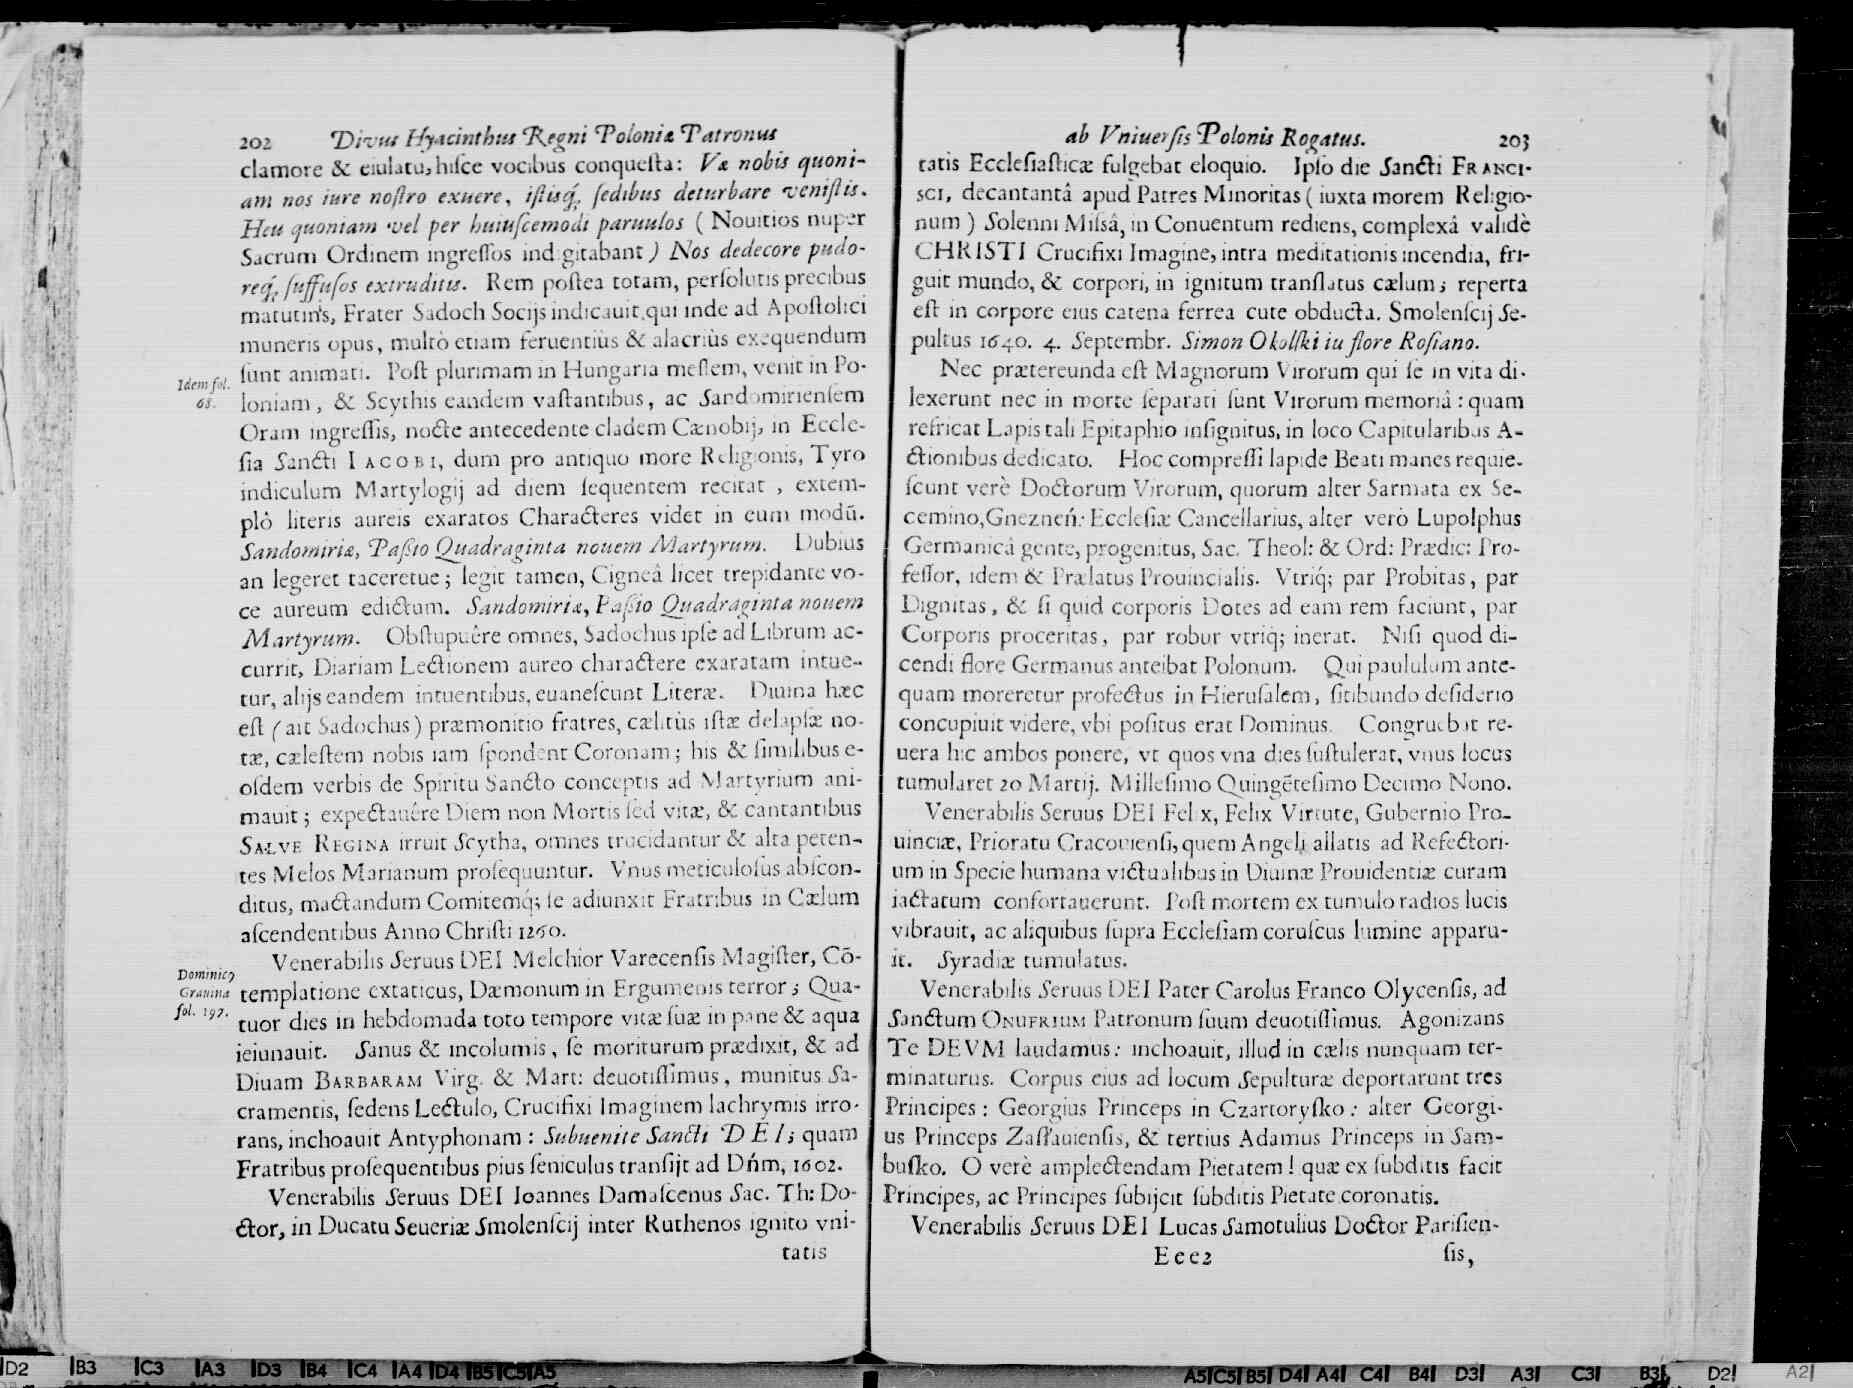 202 Divus Hyacinthus Regni Poloniæ Patronus
clamore & eiulatu, hiſce vocibus conqueſta: Væ nobis quoni-
am nos iure noſtro exuere, iſtisq́; ſedibus deturbare veniſtis.
Heu quoniam vel per huiuſcemodi paruulos ( Nouitios nuper
Sacrum Ordinem ingreſſos indigitabant ) Nos dedecore pudo-
req́; ſuffuſos extruditis. Rem poſtea totam, perſolutis precibus
matutinis, Frater Sadoch Socijs indicauit, qui inde ad Apoſtolici
muneris opus, multò etiam feruentiùs & alacriùs exequendum
ſunt animati. Poſt plurimam in Hungaria meſſem, venit in Po-
Idem fol.
68.
loniam, & Scythis eandem vaſtantibus, ac Sandomirienſem
Oram ingreſſis, nocte antecedente cladem Cænobij, in Eccle-
ſia Sancti IACOBI, dum pro antiquo more Religionis, Tyro
indiculum Martylogij ad diem ſequentem recitat , extem-
plò literis aureis exaratos Characteres videt in eum modū.
Sandomiriæ, Paßio Quadraginta nouem Martyrum. Dubius
an legeret taceretue; legit tamen, Cigneâ licet trepidante vo-
ce aureum edictum. Sandomiriæ, Paßio Quadraginta nouem
Martyrum. Obſtupuêre omnes, Sadochus ipſe ad Librum ac-
currit, Diariam Lectionem aureo charactere exaratam intue-
tur, alijs eandem intuentibus, euaneſcunt Literæ. Diuina hæc
eſt ( ait Sadochus ) præmonitio fratres, cælitùs iſtæ delapſæ no-
tæ, cæleſtem nobis iam ſpondent Coronam; his & ſimilibus e-
oſdem verbis de Spiritu Sancto conceptis ad Martyrium ani-
mauit; expectauêre Diem non Mortis ſed vitæ, & cantantibus
SALVE REGINA irruit Scytha, omnes trucidantur & alta peten-
tes Melos Marianum proſequuntur. Vnus meticuloſus abſcon-
ditus, mactandum Comitemq́; ſe adiunxit Fratribus in Cælum
aſcendentibus Anno Chriſti 1260.
Venerabilis Seruus DEI Melchior Varecenſis Magiſter, Cō-
Dominicꝰ
Grauina
fol. 197.
templatione extaticus, Dæmonum in Ergumenis terror; Qua-
tuor dies in hebdomada toto tempore vitæ ſuæ in pane & aqua
ieiunauit. Sanus & incolumis, ſe moriturum prædixit, & ad
Diuam BARBARAM Virg. & Mart: deuotiſſimus, munitus Sa-
cramentis, ſedens Lectulo, Crucifixi Imaginem lachrymis irro-
rans, inchoauit Antyphonam: Subuenite Sancti DEI; quam
Fratribus proſequentibus pius ſeniculus tranſijt ad Dńm, 1602.
Venerabilis Seruus DEI Ioannes Damaſcenus Sac. Th: Do-
ctor, in Ducatu Seueriæ Smolenſcij inter Ruthenos ignito vni-
tatis
ab Vniuerſis Polonis Rogatus. 203
tatis Eccleſiaſticæ fulgebat eloquio. Ipſo die Sancti FRANCI-
SCI, decantantâ apud Patres Minoritas ( iuxta morem Religio-
num ) Solenni Miſsâ, in Conuentum rediens, complexâ validè
CHRISTI Crucifixi Imagine, intra meditationis incendia, fri-
guit mundo, & corpori, in ignitum tranſlatus cælum; reperta
eſt in corpore eius catena ferrea cute obducta. Smolenſcij Se-
pultus 1640. 4. Septembr. Simon Okolſki iu flore Roſiano.
Nec prætereunda eſt Magnorum Virorum qui ſe in vita di-
lexerunt nec in morte ſeparati ſunt Virorum memoriâ: quam
refricat Lapis tali Epitaphio inſignitus, in loco Capitularibus A-
ctionibus dedicato. Hoc compreſſi lapide Beati manes requie-
ſcunt verè Doctorum Virorum, quorum alter Sarmata ex Se-
cemino, Gneznen̄: Eccleſiæ Cancellarius, alter verò Lupolphus
Germanicâ gente, progenitus, Sac. Theol: & Ord: Prædic: Pro-
feſſor, idem & Prælatus Prouincialis. Vtriq́; par Probitas, par
Dignitas, & ſi quid corporis Dotes ad eam rem faciunt, par
Corporis proceritas, par robur vtriq́; inerat. Niſi quod di-
cendi flore Germanus anteibat Polonum. Qui paululum ante-
quam moreretur profectus in Hieruſalem, ſitibundo deſiderio
concupiuit videre, vbi poſitus erat Dominus. Congruebat re-
uera hic ambos ponere, vt quos vna dies ſuſtulerat, vnus locus
tumularet 20 Martij. Milleſimo Quingēteſimo Decimo Nono.
Venerabilis Seruus DEI Felix, Felix Virtute, Gubernio Pro-
uinciæ, Prioratu Cracouienſi, quem Angeli allatis ad Refectori-
um in Specie humana victualibus in Diuinæ Prouidentiæ curam
iactatum confortauerunt. Poſt mortem ex tumulo radios lucis
vibrauit, ac aliquibus ſupra Eccleſiam coruſcus lumine apparu-
it. Syradiæ tumulatus.
Venerabilis Seruus DEI Pater Carolus Franco Olycenſis, ad
Sanctum ONUFRIUM Patronum ſuum deuotiſſimus. Agonizans
Te DEVM laudamus: inchoauit, illud in cælis nunquam ter-
minaturus. Corpus eius ad locum Sepulturæ deportarunt tres
Principes: Georgius Princeps in Czartoryſko: alter Georgi-
us Princeps Zaſlauienſis, & tertius Adamus Princeps in Sam-
buſko. O verè amplectendam Pietatem! quæ ex ſubditis facit
Principes, ac Principes ſubijcit ſubditis Pietate coronatis.
Venerabilis Seruus DEI Lucas Samotulius Doctor Pariſien-
Eee2 ſis,
D2 B3 C3 A3 D3 B4 C4 A4 D4 B5 C5 A5 A5 C5 B5 D4 A4 C4 B4 D3 A3 C3 B3 D2 A2